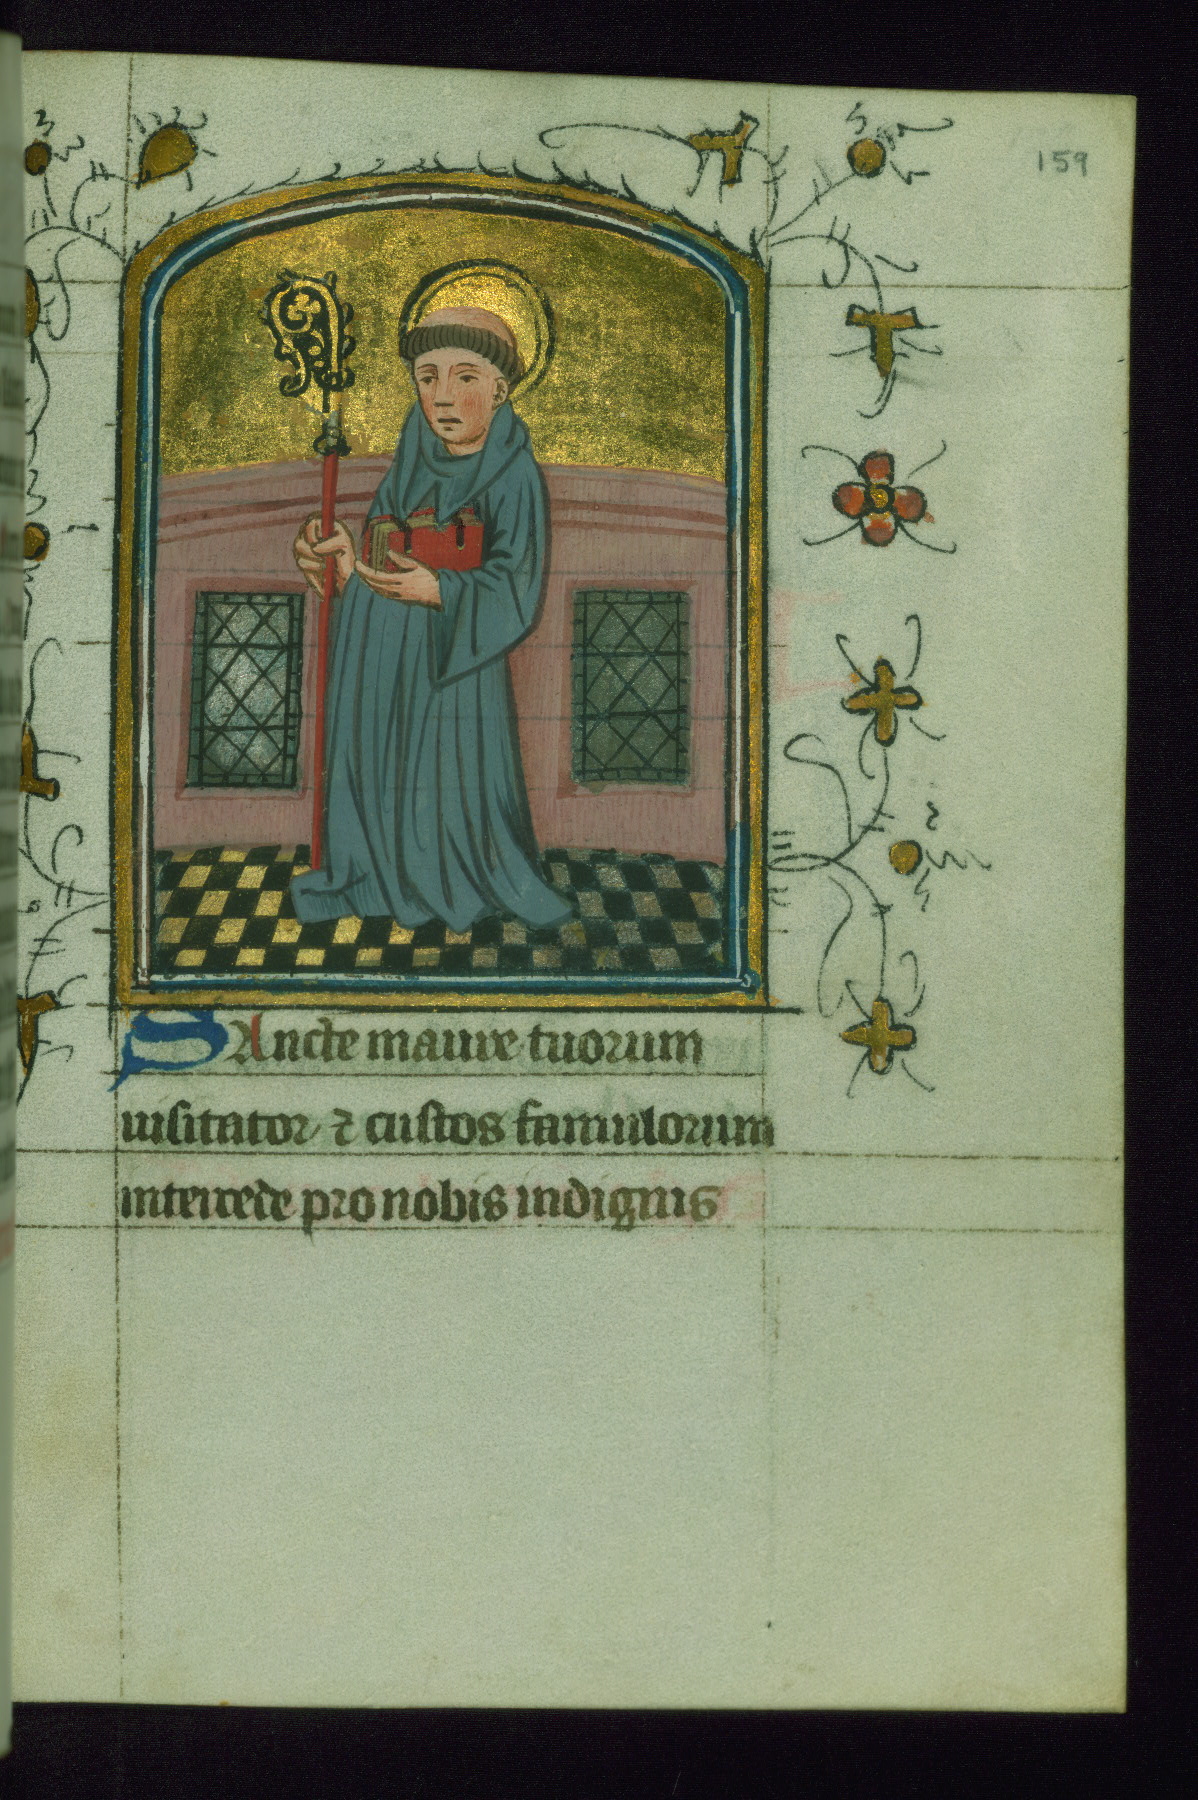 159
SAncte maure tuorum
uisitator ⁊ custos famulorum
intercede pro nobis indignis